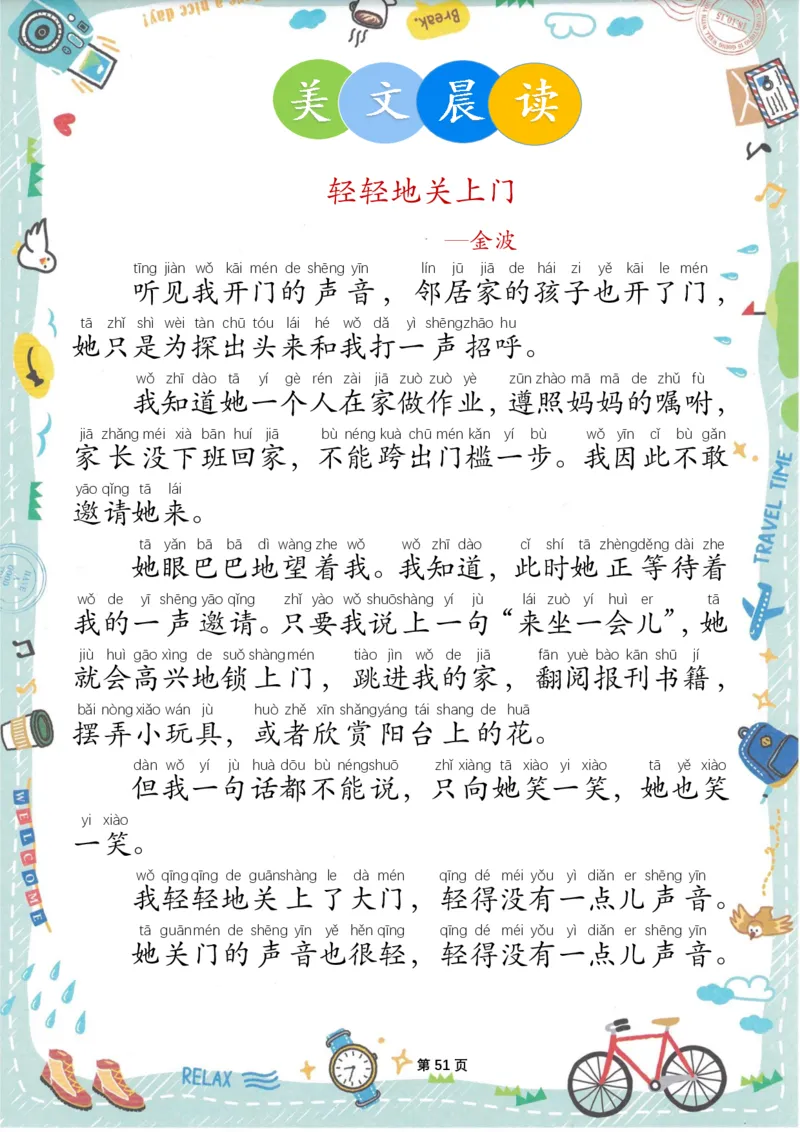 Break.
美文晨读
轻轻地关上门
—金波
tīng jiàn wǒ kāi mén de shēng yīn lín jū jiā de hái zi yě kāi le mén
听见我开门的声音，邻居家的孩子也开了门，
tā zhǐ shì wèi tàn chū tóu lái hé wǒ dǎ yì shēng zhāo hu
她只是为探出头来和我打一声招呼。
wǒ zhī dào tā yí gè rén zài jiā zuò zuò yè zūn zhào mā mā de zhǔ fù
我知道她一个人在家做作业，遵照妈妈的嘱咐，
jiā zhǎng méi xià bān huí jiā bù néng kuà chū mén kǎn yí bù wǒ yīn cǐ bù gǎn
家长没下班回家，不能跨出门槛一步。我因此不敢
yāo qǐng tā lái
邀请她来。
tā yǎn bā bā dì wàng zhe wǒ wǒ zhī dào cǐ shí tā zhèng děng dài zhe
她眼巴巴地望着我。我知道，此时她正等待着
wǒ de yī shēng yāo qǐng zhǐ yào wǒ shuō shàng yí jù lái zuò yí huì er tā
我的一声邀请。只要我说上一句“来坐一会儿”，她
jiù huì gāo xìng de suǒ shàng mén tiào jìn wǒ de jiā fān yuè bào kān shū jí
就会高兴地锁上门，跳进我的家，翻阅报刊书籍，
bǎi nòng xiǎo wán jù huò zhě xīn shǎng yáng tái shang de huā
摆弄小玩具，或者欣赏阳台上的花。
dàn wǒ yí jù huà dōu bù néng shuō zhǐ xiàng tā xiào yi xiào tā yě xiào
但我一句话都不能说，只向她笑一笑，她也笑
yi xiào
一笑。
wǒ qīng qīng de guān shàng le dà mén qīng dé méi yǒu yì diǎn er shēng yīn
我轻轻地关上了大门，轻得没有一点儿声音。
tā guān mén de shēng yīn yě hěn qīng qīng dé méi yǒu yì diǎn er shēng yīn
她关门的声音也很轻，轻得没有一点儿声音。
TRAVEL TIME
WELCOME
RELAX
第 51 页